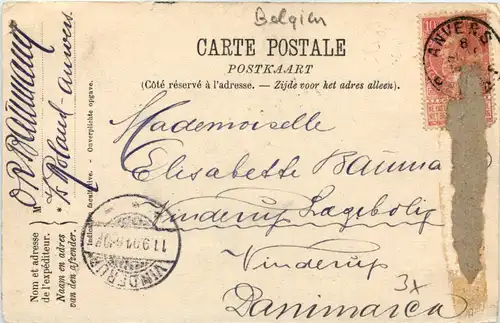 Belgien
CARTE POSTALE
POSTKAART
(Côté réservé à l'adresse. — Zijde voor het adres alleen).
10
ANVERS
8
Mademoiselle
Elisabette Bauma
Vinderup Lægebolig
Vinderup
Danimarca
3x
VINDERUP
11.9.01
Indication facultative. - Onverplichte opgave.
Nom et adresse
de l'expéditeur.
Naam en adres
van den afzender.
M
Roland - Anvers